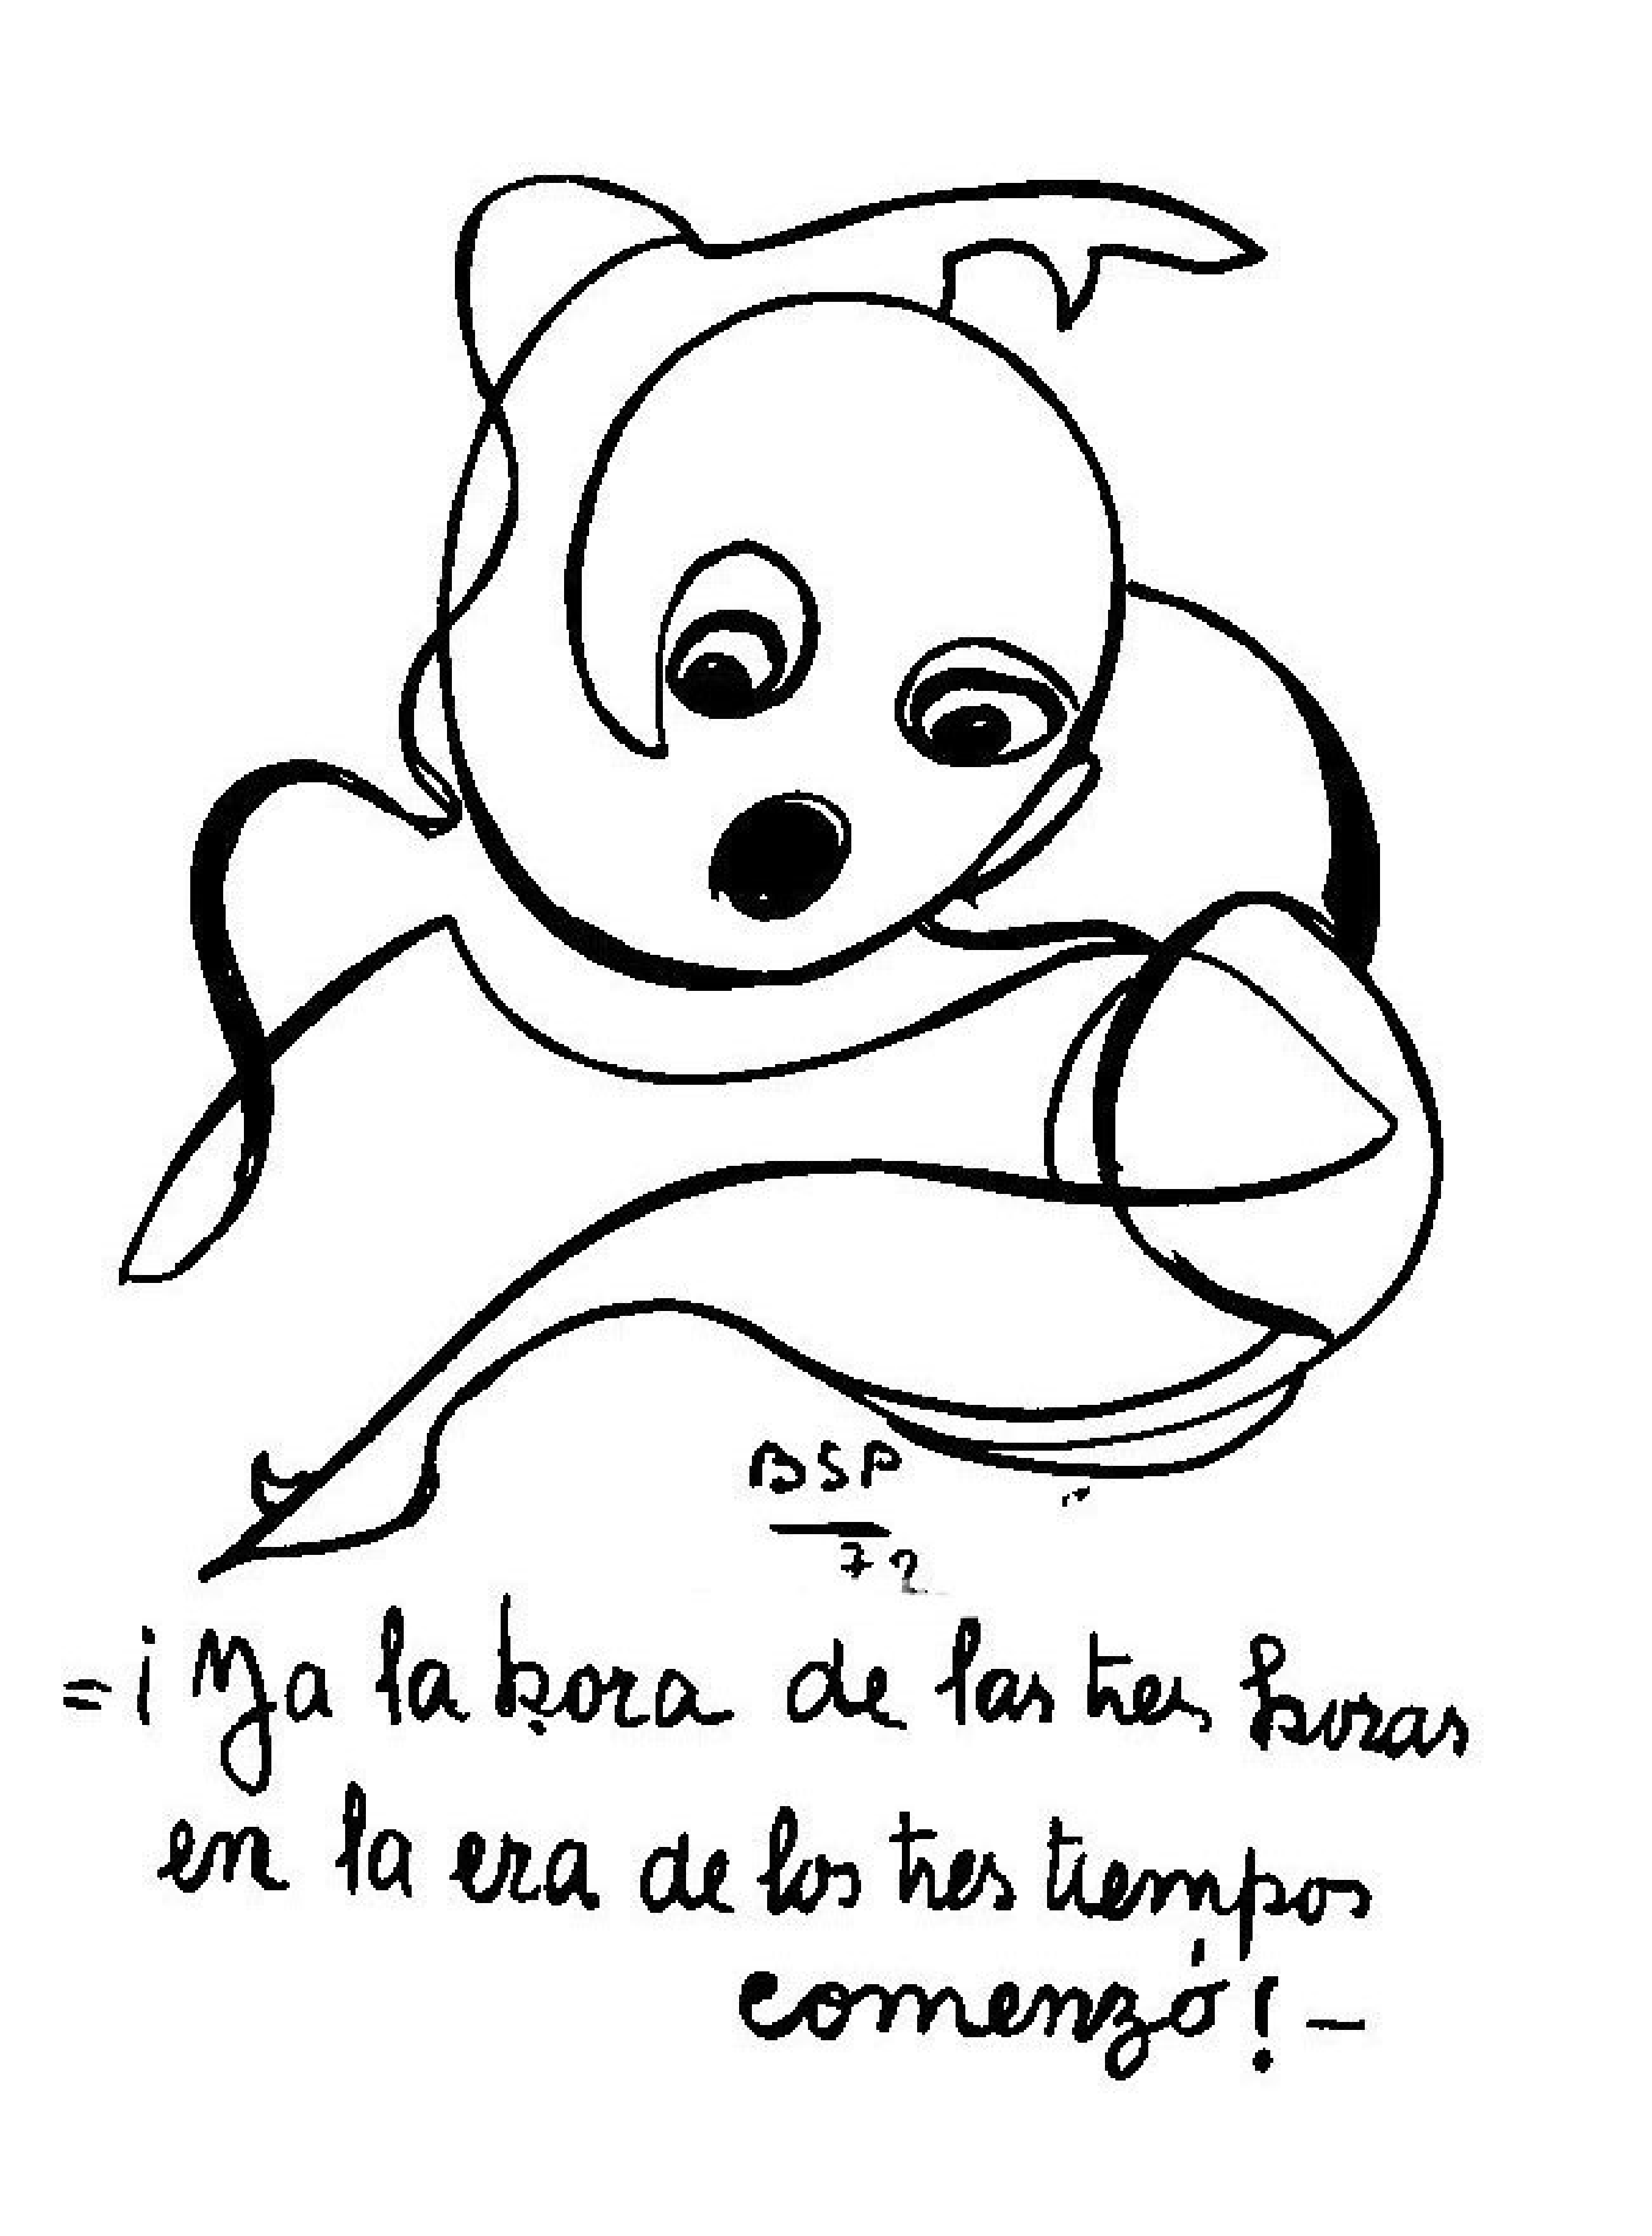 BSP
72
=¡Ya la hora de las tres horas
en la era de los tres tiempos
comenzó!-